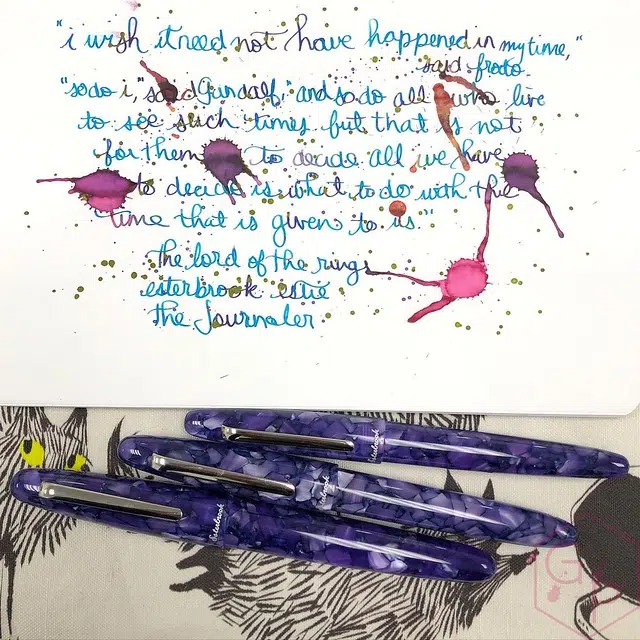 "i wish it need not have happened in my time,"
said frodo.
"so do i," said Gandalf, "and so do all who live
to see such times. but that is not
for them to decide. all we have
to decide is what to do with the
time that is given to us."
the lord of the rings
esterbrook estie
the Journaler
Esterbrook
Esterbrook
Esterbrook